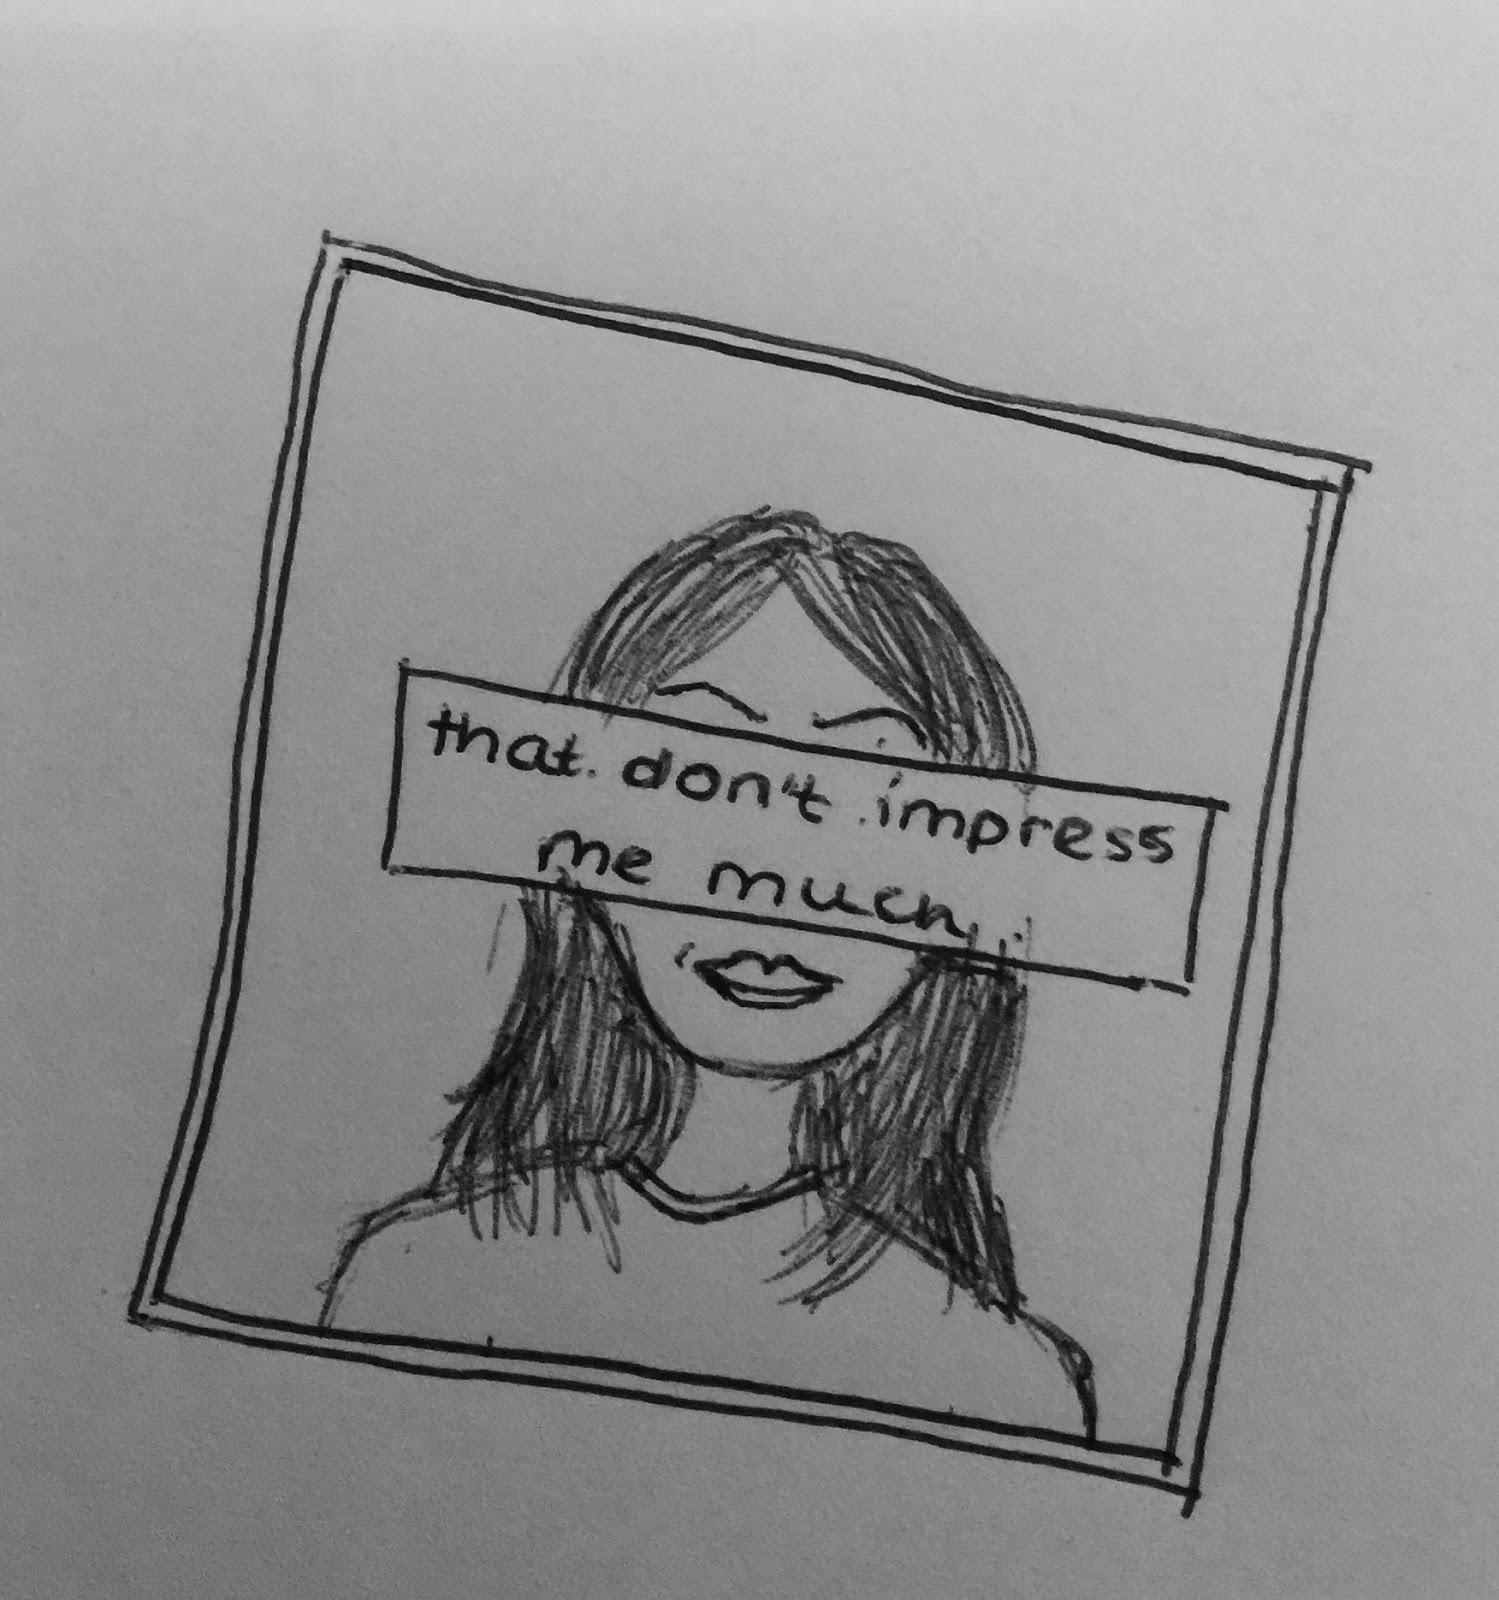 that don't impress
me much..